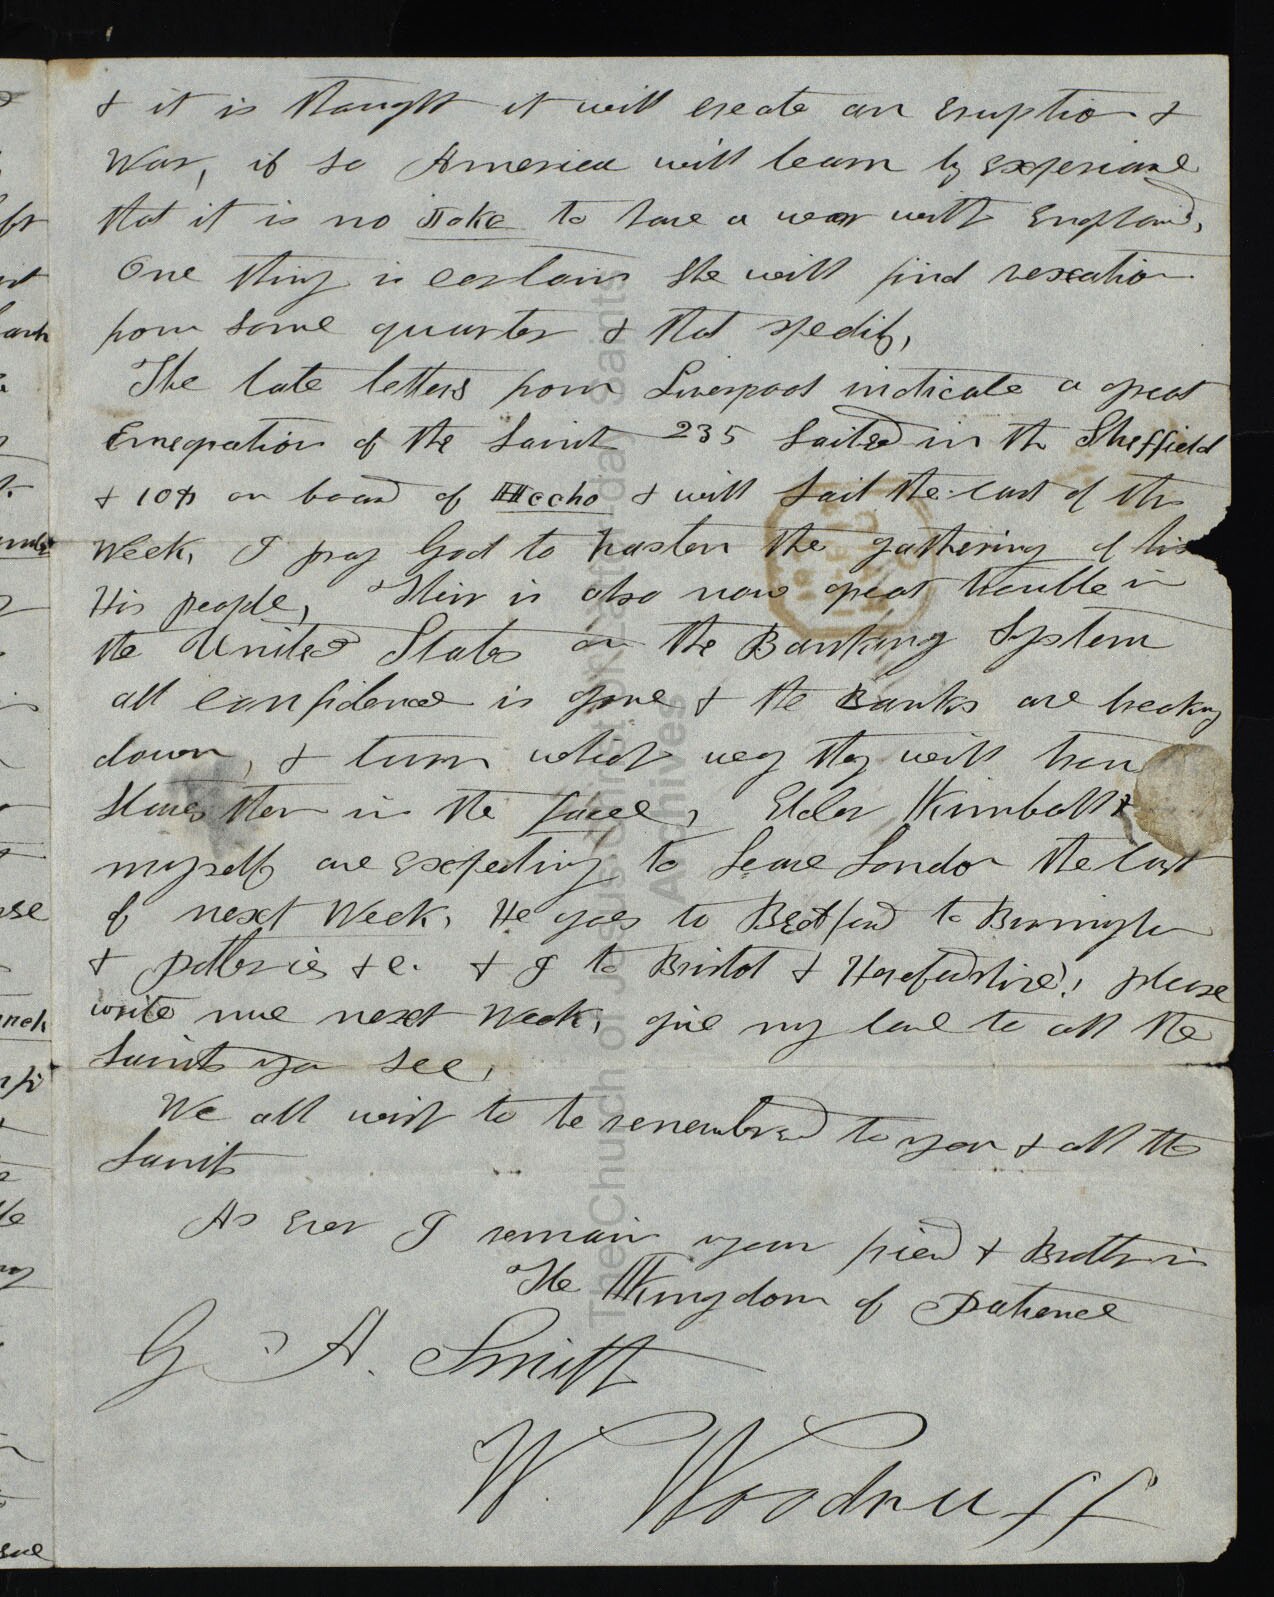 & it is thought it will create an Eruption &
War, if so America will learn by Experiance
that it is no Joke to have a war with England,
One thing is certain she will find vexation
from some quarter & that spedily,
The late letters from Liverpool indicate a great
Emegration of the Saints 235 Sailed in the Sheffield
& on board of Echo & will Sail the last of this
Week, I pray God to hasten the gathering of his
His people, Their is also now great trouble in
the United States on the Banking System
all confidence is gone & the Banks are breaking
down, & turn which way they will
Stares them in the face, Elder Kimball &
myself are Expecting to leave London the last
of next Week, He goes to Bedford to Birmingham
& potteries &c. & I to Bristol & Herefordshire, please
write me next Week, give my love to all the
Saints you see,
We all wish to be remembered to you & all the
Saints
As Ever I remain your friend & Brother in
The Kingdom of Patience
G. A. Smith
W. Woodruff
The Church of Jesus Christ of Latter-day Saints
Archives